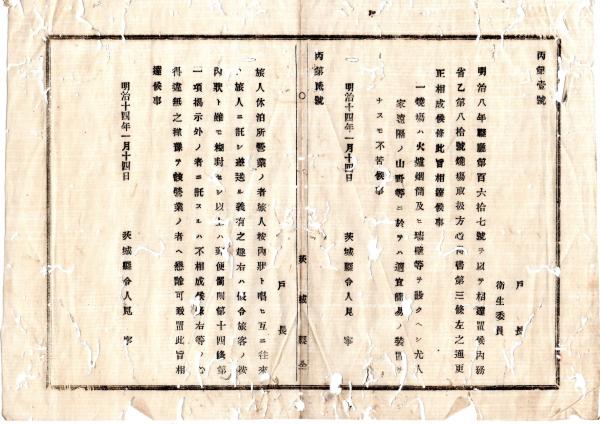 丙第壹號
戸長
衛生委員
明治八年縣廳第百六拾七號ヲ以テ相達置候內務
省乙第八拾號燒場取扱方心得書第三條左之通更
正相成候條此旨相達候事
一燒場ハ火爐烟筒及ヒ墻壁等ヲ設クヘシ尤人
家遠隔ノ山野等ニ於テハ適宜簡易ノ裝置ヲ
ナスモ不苦候事
明治十四年一月十四日
茨城縣令人見寧
丙第貳號
戸長
旅人休泊所營業ノ者旅人按內狀ト唱ヒ互ニ往來
ノ旅人ニ託シ差送ル義有之趣右ハ假令旅客ノ按
內狀ト雖モ糊封セシ以上ハ郵便罰則第十四條第
一項揭示外ノ者ニ託スルハ不相成候條右等ノ心
得違無之樣該營業ノ者ヘ懇篤可致置此旨相
達候事
明治十四年一月十四日
茨城縣令人見寧
茨城縣